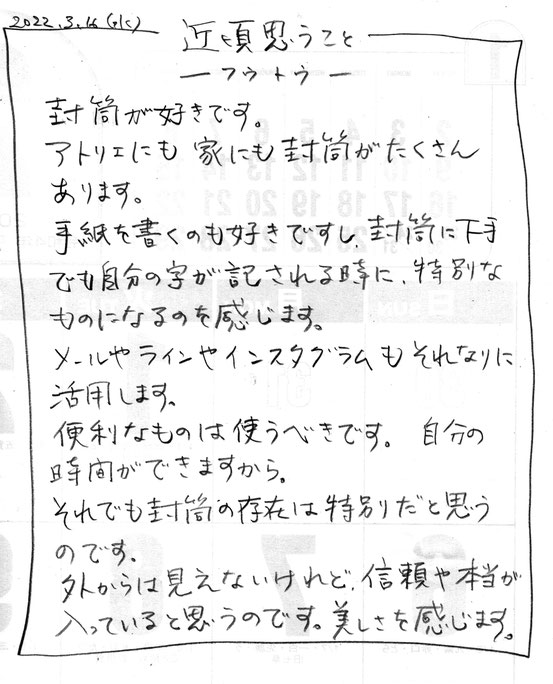 2022.3.16(水)
近頃思うこと
ーフウトウー
封筒が好きです。
アトリエにも 家にも封筒がたくさん
あります。
手紙を書くのも好きですし、封筒に下手
でも自分の字が記される時に、特別な
ものになるのを感じます。
メールやラインやインスタグラムもそれなりに
活用します。
便利なものは使うべきです。 自分の
時間ができますから。
それでも封筒の存在は特別だと思う
のです。
外からは見えないけれど、信頼や本当が
入っていると思うのです。美しさを感じます。